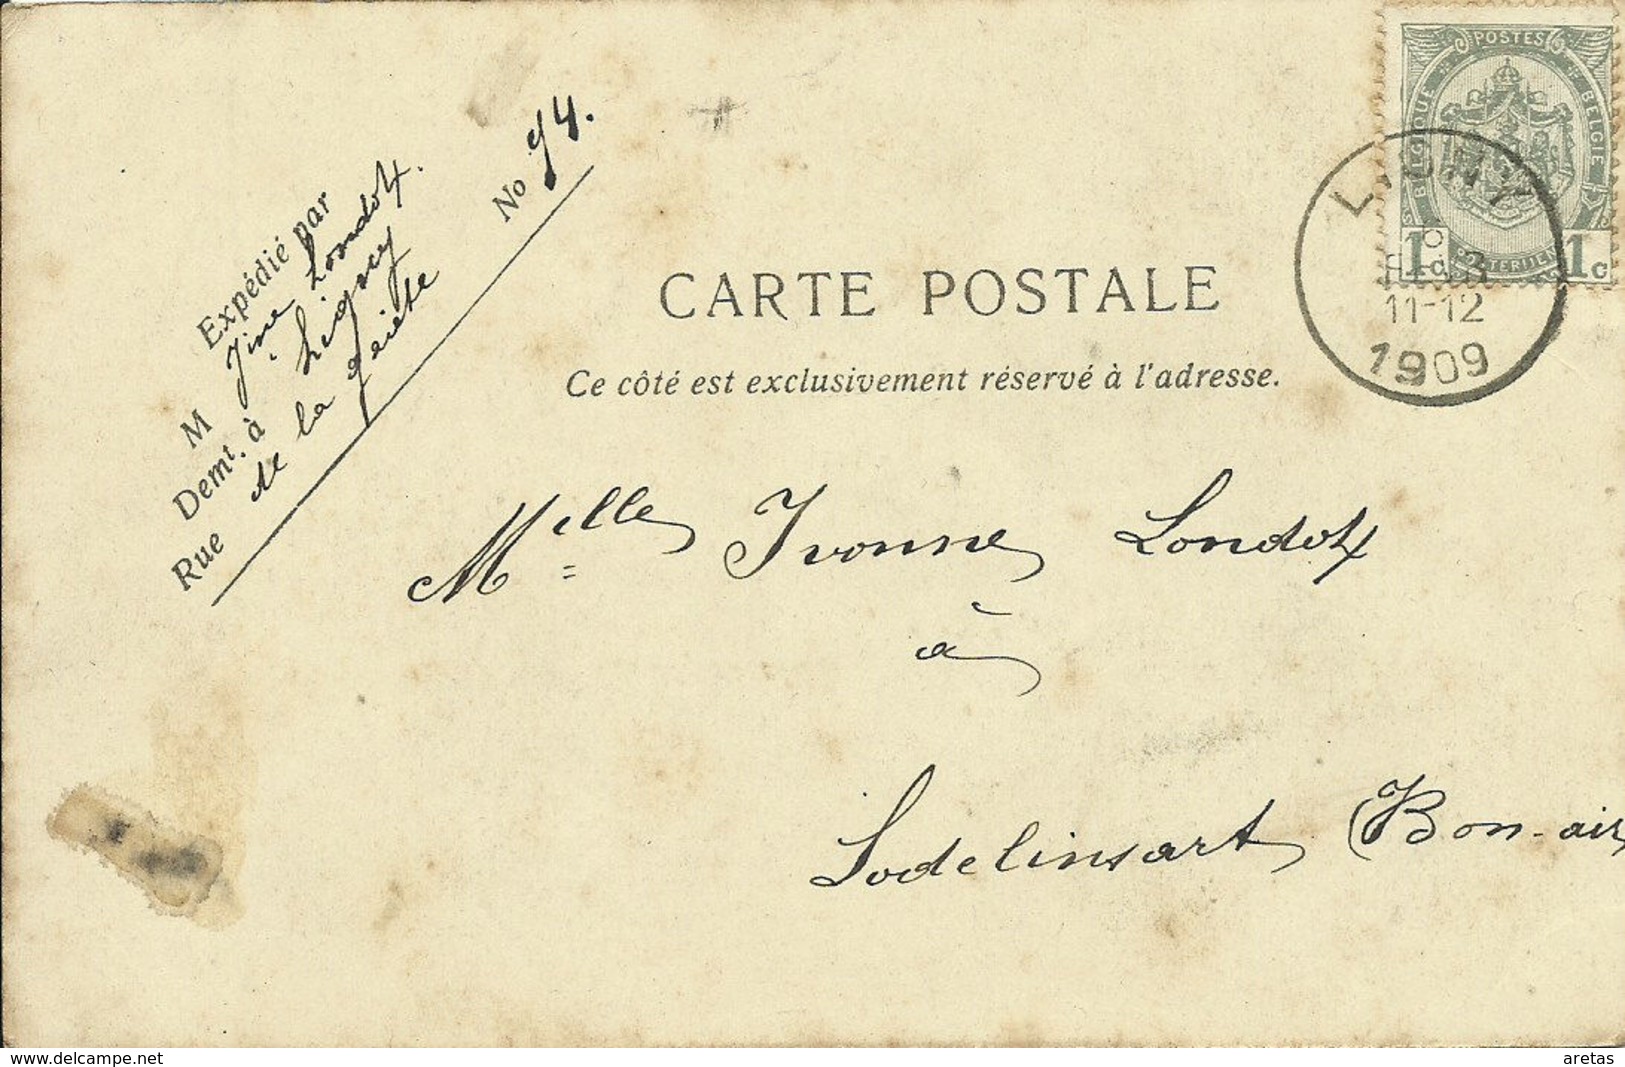 Expédié par
M Jne Londot.
Demt. à Ligny
Rue de la gaiete
No 74.
POSTES
BELGIQUE BELGIË
POSTERIJEN
1c 1c
LIGNY
11-12
1909
CARTE POSTALE
Ce côté est exclusivement réservé à l'adresse.
Melle Yvonne Londot
à
Lodelinsart (Bon-air
www.delcampe.net
aretas